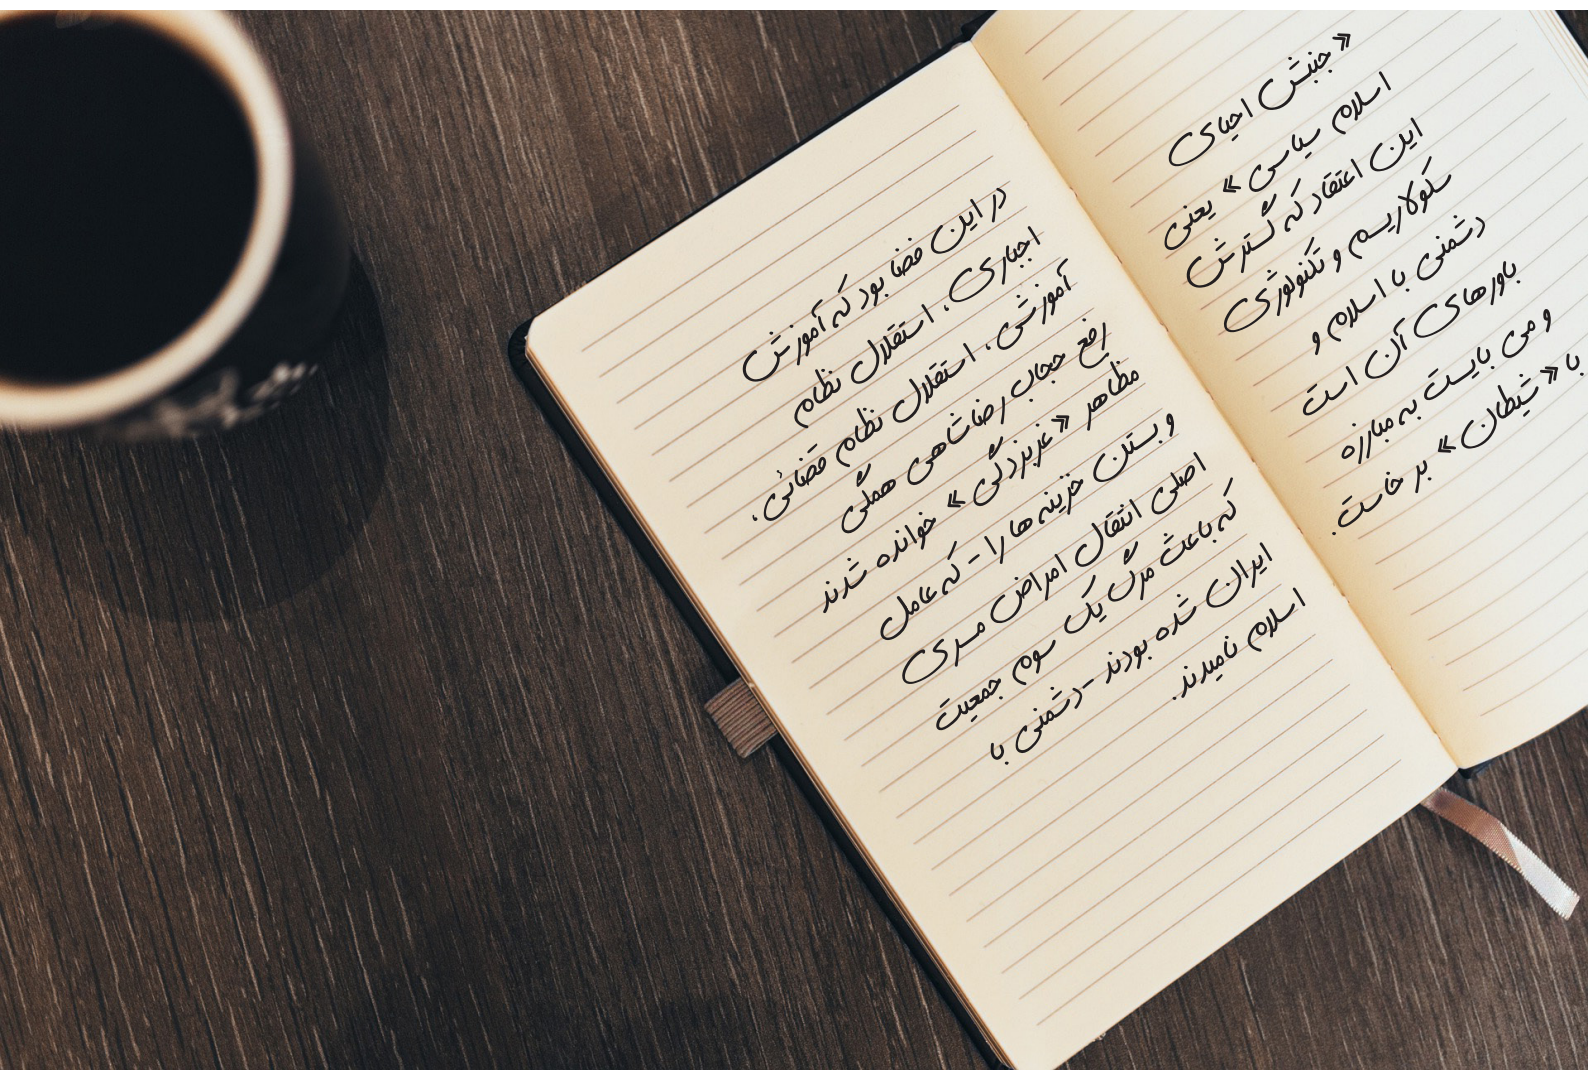 «جنبش احیای
اسلام سیاسی» یعنی
این اعتقاد که گسترش
سکولاریسم و تکنولوژی
دشمنی با اسلام و
باورهای آن است
و می بایست به مبارزه
با «شیطان» بر خاست.
در این فضا بود که آموزش
اجباری، استقلال نظام
آموزشی، استقلال نظام قضائی،
رفع حجاب رضاشاهی همگی
مظاهر «غربزدگی» خوانده شدند
و بستن خزینه ها را - که عامل
اصلی انتقال امراض مسری
که باعث مرگ یک سوم جمعیت
ایران شده بودند - دشمنی با
اسلام نامیدند.